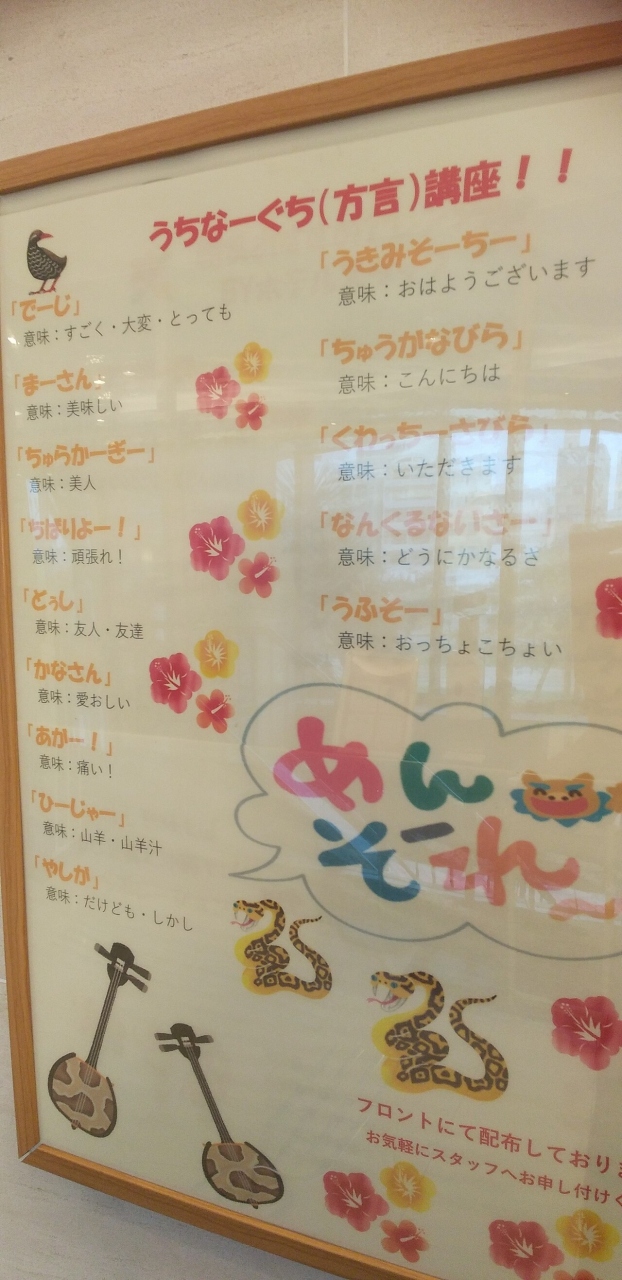 うちなーぐち(方言)講座！！
「でーじ」
意味：すごく・大変・とっても
「まーさん」
意味：美味しい
「ちゅらかーぎー」
意味：美人
「ちばりよー！」
意味：頑張れ！
「どぅし」
意味：友人・友達
「かなさん」
意味：愛おしい
「あがー！」
意味：痛い！
「ひーじゃー」
意味：山羊・山羊汁
「やしが」
意味：だけども・しかし
「うきみそーちー」
意味：おはようございます
「ちゅうがなびら」
意味：こんにちは
「くわっちーさびら」
意味：いただきます
「なんくるないさー」
意味：どうにかなるさ
「うふそー」
意味：おっちょこちょい
めん
そーれ
フロントにて配布しており
お気軽にスタッフへお申し付け